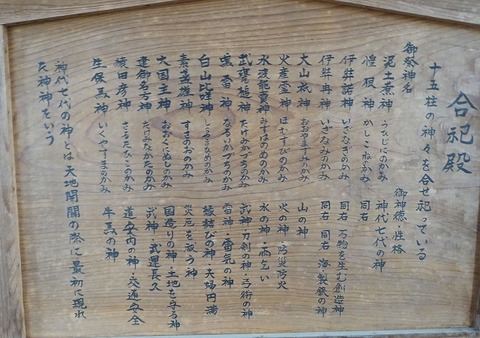 合祀殿
十五柱の神々を合せ祀っている
御祭神名 御神徳・性格
泥土煮神 うひじにのかみ 神代七代の神
惶根神 かしこねのかみ 同右
伊弉諾神 いざなぎのかみ 同右 万物を生む創造神
伊弉冉神 いざなみのかみ 同右 同右 海・製鉄の神
大山祇神 おおやまずみのかみ 山の神
火産霊神 ほむすびのかみ 火の神・防災防火
水波能賣神 みずはのめのかみ 水の神・雨乞い
武甕槌神 たけみかづちのかみ 武神・刀剣の神・弓術の神
雷神 なるいかづちのかみ 雷神・電気の神
白山比咩神 しらやまひめのかみ 縁結びの神・夫婦円満
素盞嗚神 すさのおのかみ 災厄を祓う神
大国主神 おおくにぬしのかみ 国造りの神・土地を守る神
建御名方神 たけみなかたのかみ 武神・武運長久
猿田彦神 さるたひこのかみ 道案内の神・交通安全
生保馬神 いくやすまのかみ 牛馬の神
神代七代の神とは天地開闢の際に最初に現れ
た神神をいう